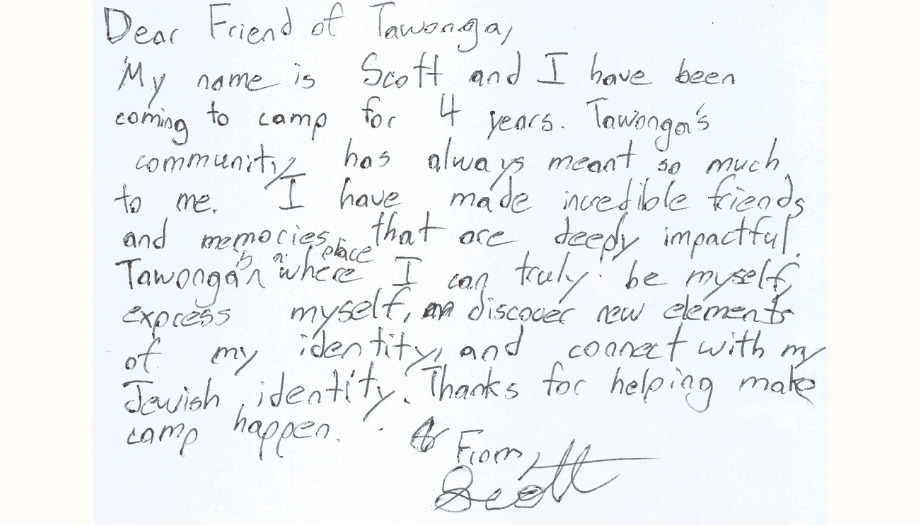 Dear Friend of Tawonga,
My name is Scott and I have been
coming to camp for 4 years. Tawonga's
community has always meant so much
to me. I have made incredible friends
and memories that are deeply impactful.
Tawonga is a place where I can truly be myself,
express myself, discover new elements
of my identity, and connect with my
Jewish identity. Thanks for helping make
camp happen.
From,
Scott